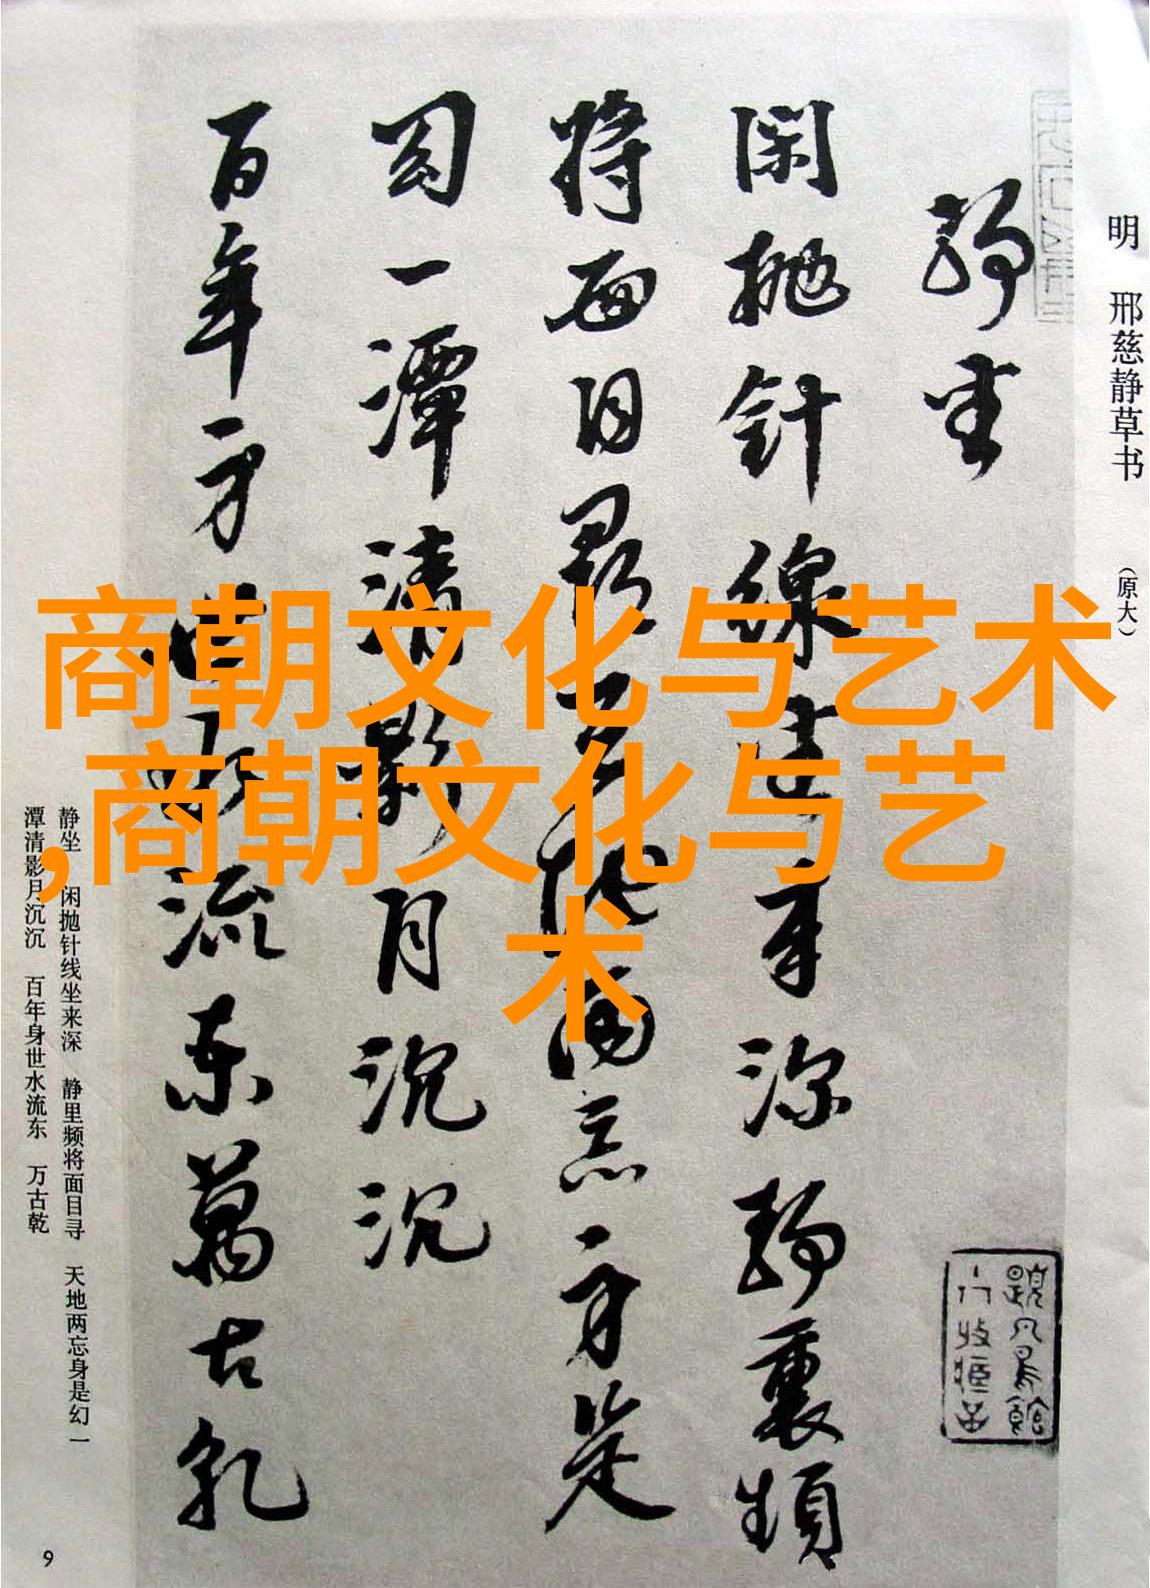 明 邢慈静草书 （原大）
静坐
閑抛針線坐來深静裏頻
將面目尋天地兩忘身是
幻一潭清影月沉沉
百年身世水流東萬古乾
商朝文化与艺术
,商朝文化与艺
术
静坐 闲抛针线坐来深 静里频将面目寻 天地两忘身是幻 一
潭清影月沉沉 百年身世水流东 万古乾
9